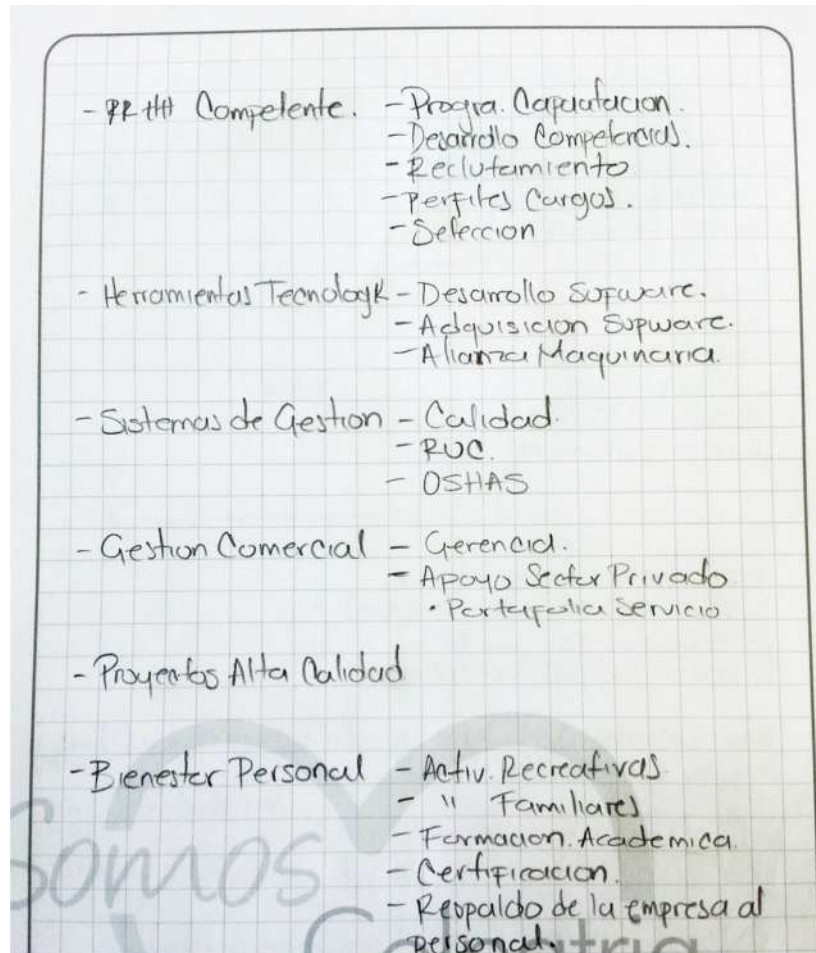 - RRHH Competente. - Progra. Capacitacion.
- Desarrollo Competencias.
- Reclutamiento
- Perfiles Cargos.
- Seleccion
- Herramientas Tecnologk - Desarrollo Sofware.
- Adquisicion Sofware.
- Alianza Maquinaria.
- Sistemas de Gestion - Calidad.
- RUC.
- OSHAS
- Gestion Comercial - Gerencia.
- Apoyo Sector Privado
• Portafolio Servicio
- Proyectos Alta Calidad
- Bienestar Personal - Activ. Recreativas
- " Familiares
- Formacion. Academica.
- Certificacion.
- Respaldo de la empresa al
personal.
Somos